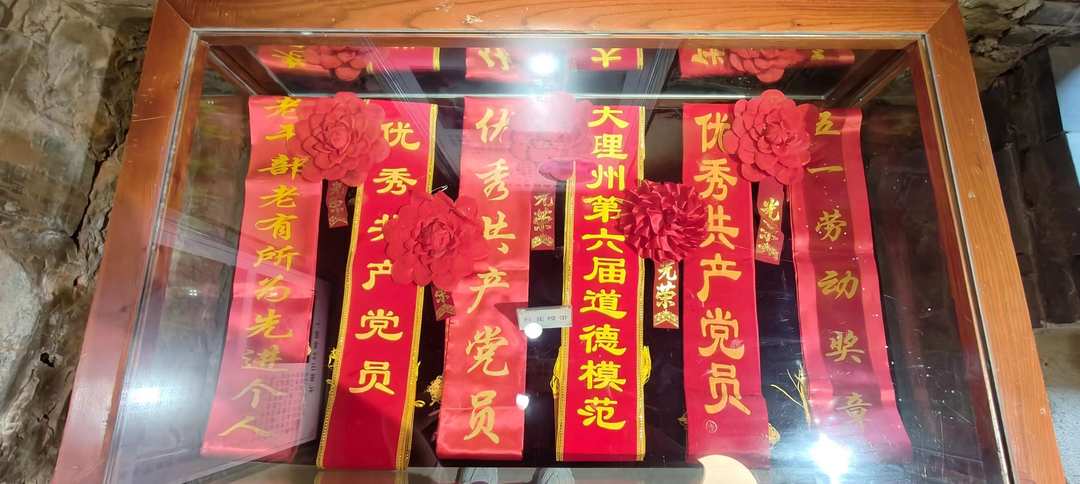 老干部老有所为先进个人
优秀共产党员
优秀共产党员
大理州第六届道德模范
优秀共产党员
五一劳动奖章
光荣
光荣
光荣
光荣
红花绶带